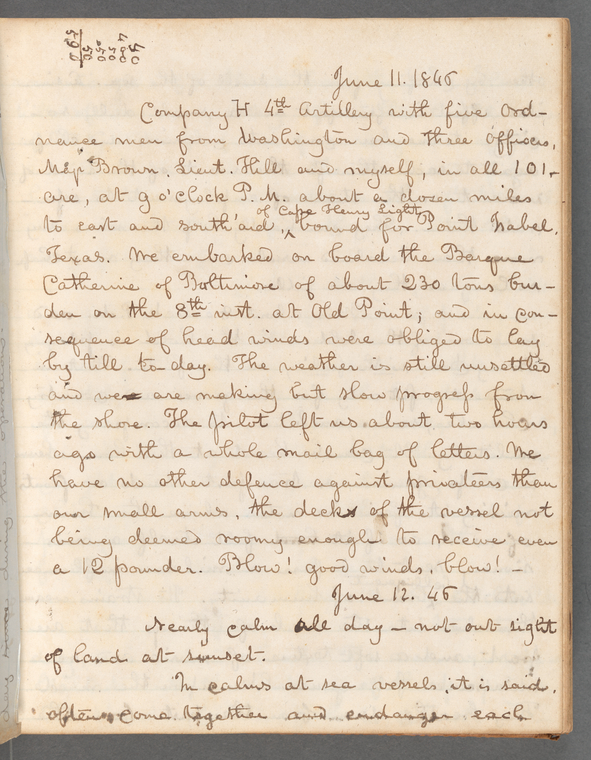 June 11. 1846
Company H 4th Artillery with five Ord-
nance men from Washington and three officers,
Maj Brown, Lieut. Hill and myself, in all 101-
are, at 9 o'clock P. M. about a dozen miles
of Cape Henry Light
to east and south'aid ^ bound for Point Isabel,
Texas. We embarked on board the Barque
Catherine of Baltimore of about 230 tons bur-
den on the 8th inst. at Old Point; and in con-
sequence of head winds were obliged to lay
by till to-day. The weather is still unsettled
and we are making but slow progress from
the shore. The pilot left us about two hours
ago with a whole mail bag of letters. We
have no other defence against privateers than
our small arms, the decks of the vessel not
being deemed roomy enough to receive even
a 12 pounder. Blow! good winds, blow! –
June 12. 46
Nearly calm all day – not out sight
of land at sunset.
In calms at sea vessels, it is said,
often come together and endanger each